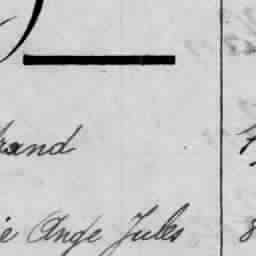 rand
ie Ange Jules 8